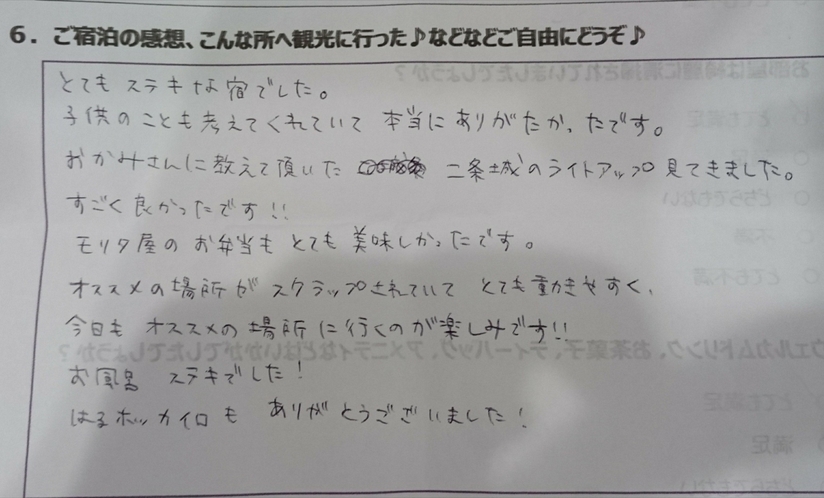 6. ご宿泊の感想、こんな所へ観光に行った♪などなどご自由にどうぞ♪
とても ステキな宿でした。
子供のことも考えてくれていて 本当にありがたかったです。
おかみさんに教えて頂いた 二条城のライトアップ見てきました。
すごく良かったです!!
モリタ屋のお弁当もとても美味しかったです。
オススメの場所がスクラップされていて とても動きやすく、
今日もオススメの場所に行くのが楽しみです!!
お風呂 ステキでした!
はるホッカイロも ありがとうございました!